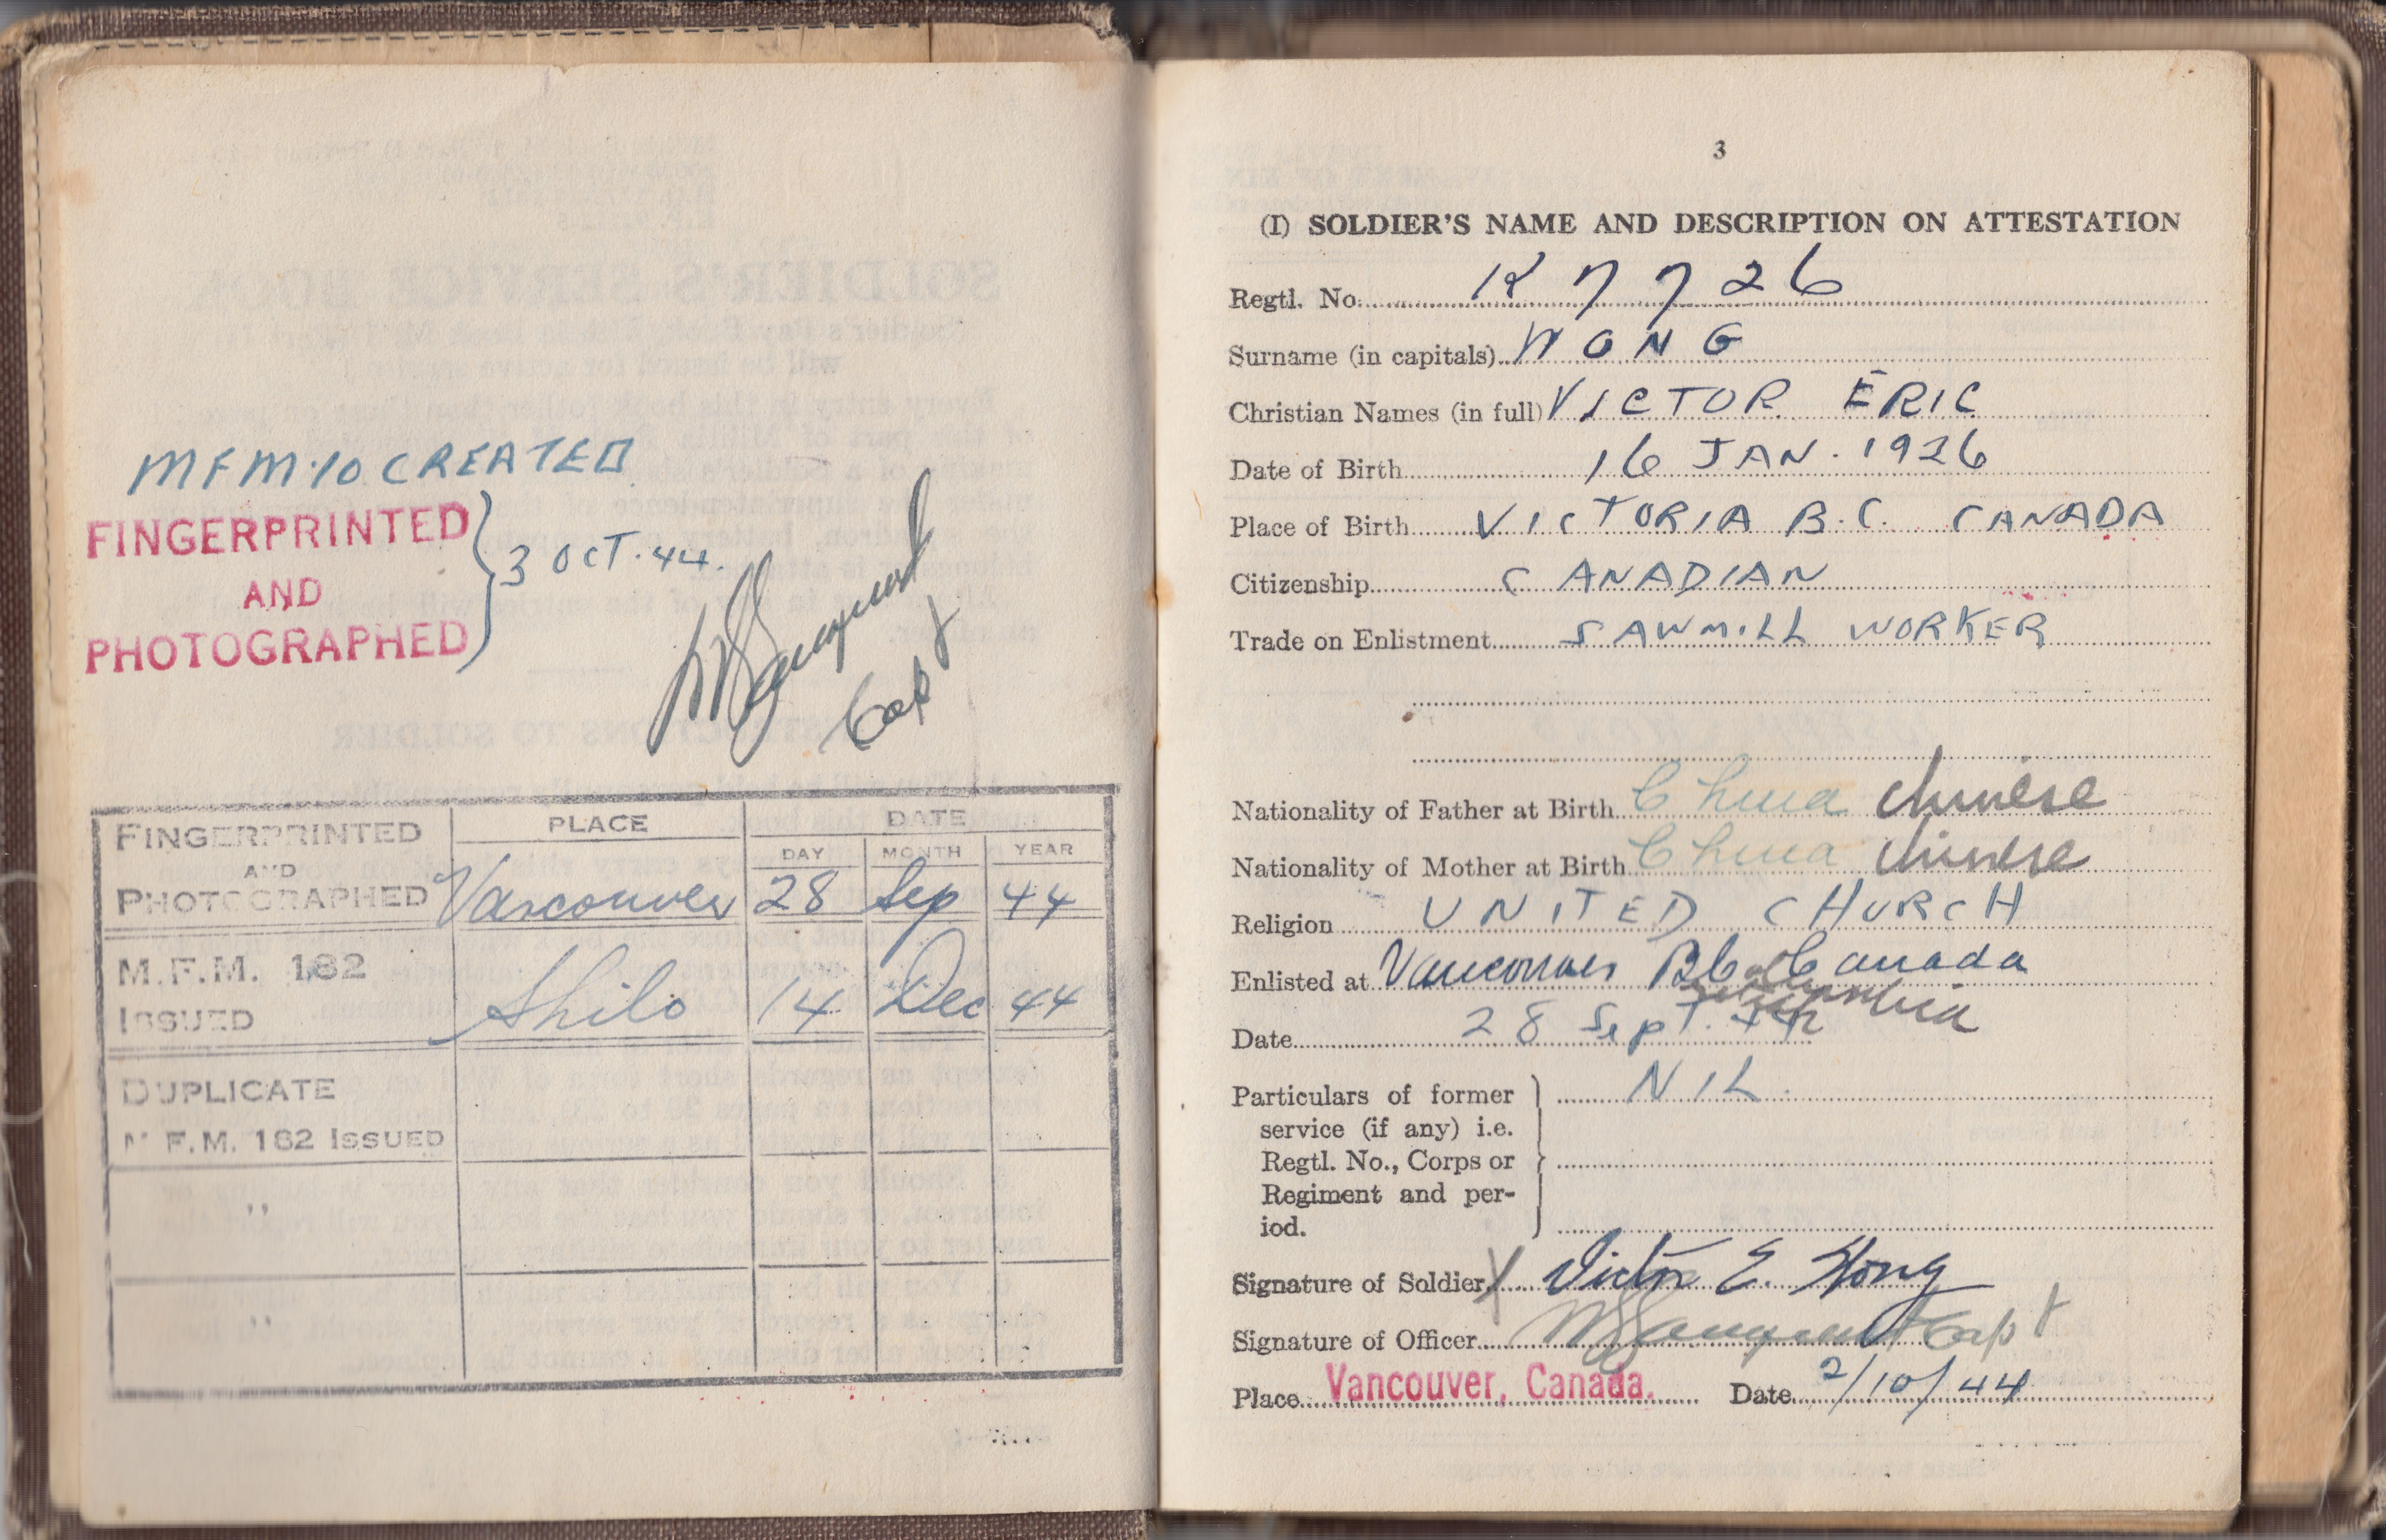 MFM 10 CREATED
FINGERPRINTED
AND
PHOTOGRAPHED
3 OCT. 44.
Capt
FINGERPRINTED
AND
PHOTOGRAPHED
PLACE
DATE
DAY MONTH YEAR
Vancouver 28 Sep 44
M.F.M. 182
ISSUED
Shilo 14 Dec 44
DUPLICATE
M.F.M. 182 ISSUED
"
"
3
(I) SOLDIER'S NAME AND DESCRIPTION ON ATTESTATION
Regtl. No. K 7726
Surname (in capitals) WONG
Christian Names (in full) VICTOR ERIC
Date of Birth 16 JAN. 1926
Place of Birth VICTORIA B.C. CANADA
Citizenship CANADIAN
Trade on Enlistment SAWMILL WORKER
Nationality of Father at Birth China Chinese
Nationality of Mother at Birth China Chinese
Religion UNITED CHURCH
Enlisted at Vancouver BC Canada
Date 28 Sept. 44
Particulars of former NIL.
service (if any) i.e.
Regtl. No., Corps or
Regiment and per-
iod.
Signature of Soldier X Victor E. Wong
Signature of Officer Capt
Place Vancouver, Canada. Date 2/10/44